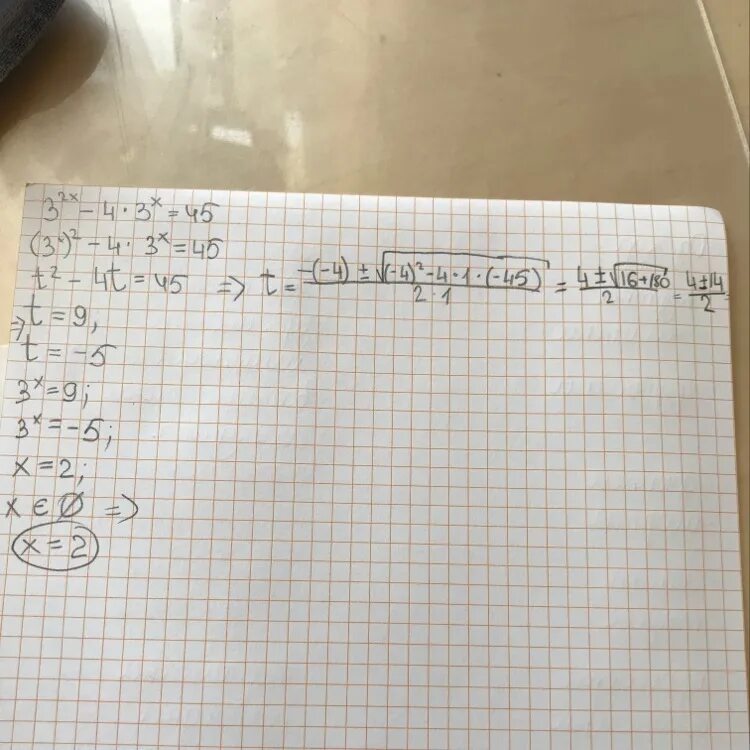 3^{2x} - 4 · 3^x = 45
(3^x)^2 - 4 · 3^x = 45
t^2 - 4t = 45 => t = \frac{-(-4) ± \sqrt{(-4)^2 - 4 · 1 · (-45)}}{2 · 1} = \frac{4 ± \sqrt{16 + 180}}{2} = \frac{4 ± 14}{2} =
=> t = 9,
t = -5
3^x = 9;
3^x = -5;
x = 2;
x ∈ Ø =>
x = 2